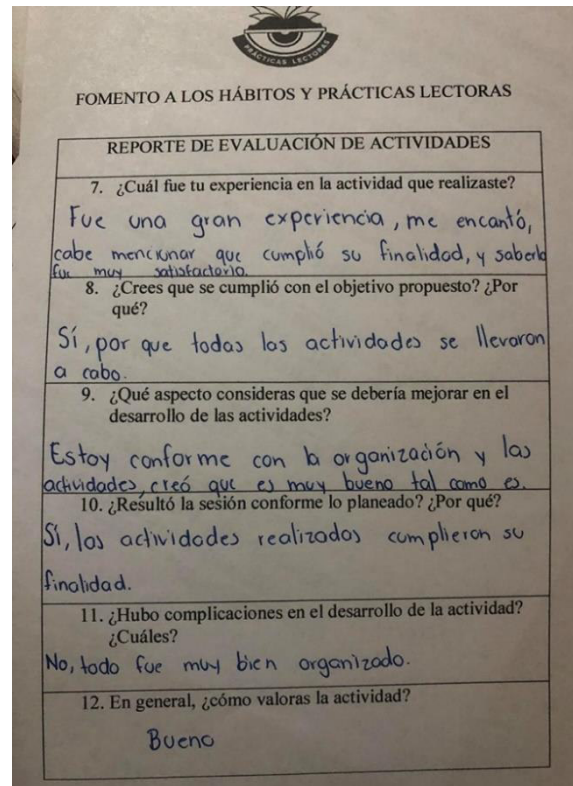 PRÁCTICAS LECTORAS
FOMENTO A LOS HÁBITOS Y PRÁCTICAS LECTORAS
REPORTE DE EVALUACIÓN DE ACTIVIDADES
7. ¿Cuál fue tu experiencia en la actividad que realizaste?
Fue una gran experiencia, me encantó,
cabe mencionar que cumplió su finalidad, y saberlo
fue muy satisfactorio.
8. ¿Crees que se cumplió con el objetivo propuesto? ¿Por
qué?
Sí, por que todas las actividades se llevaron
a cabo.
9. ¿Qué aspecto consideras que se debería mejorar en el
desarrollo de las actividades?
Estoy conforme con la organización y las
actividades, creó que es muy bueno tal como es.
10. ¿Resultó la sesión conforme lo planeado? ¿Por qué?
Sí, las actividades realizadas cumplieron su
finalidad.
11. ¿Hubo complicaciones en el desarrollo de la actividad?
¿Cuáles?
No, todo fue muy bien organizado.
12. En general, ¿cómo valoras la actividad?
Bueno